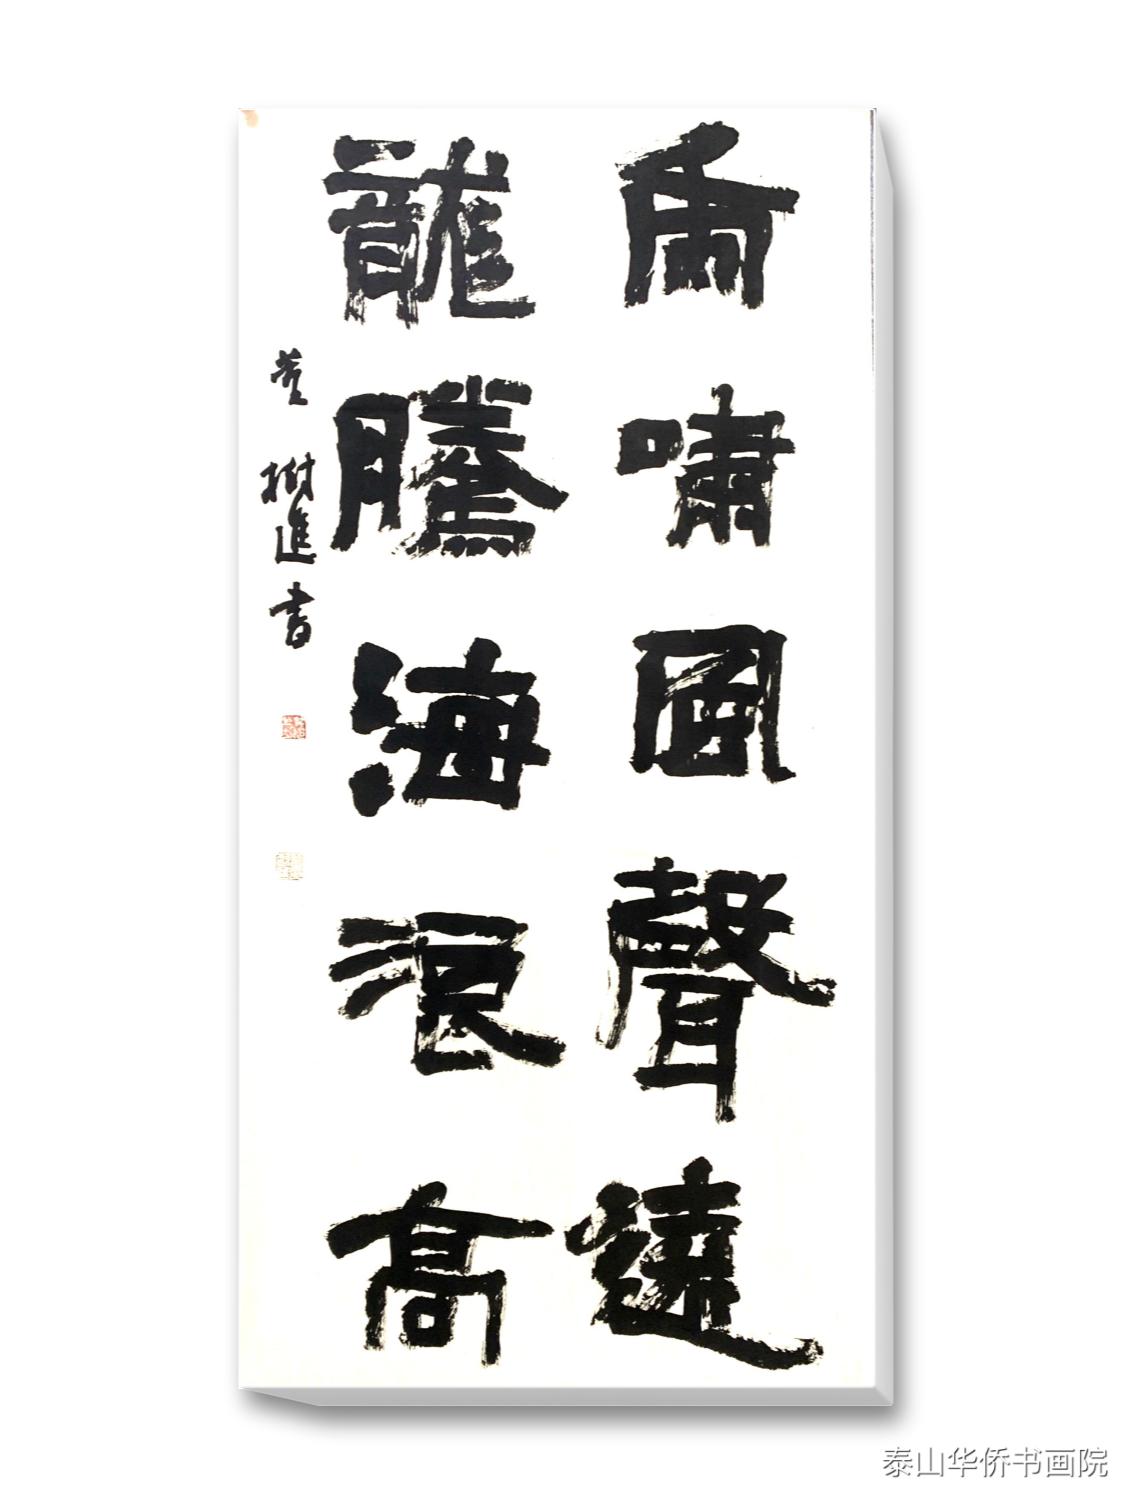 虎嘯風聲遠
龍騰海浪高
樹進書
泰山华侨书画院